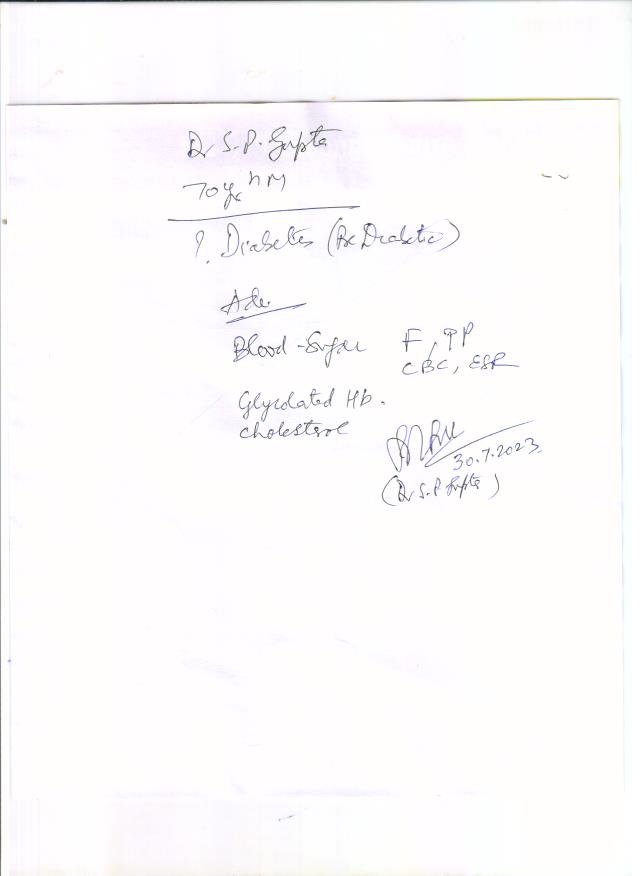 Dr S.P. Gupta
70 yr M
?. Diabetes (Pre Diabetic)
Adv.
Blood-Sugar F, PP
CBC, ESR
Glycolated Hb.
Cholesterol
30.7.2023
(Dr S.P Gupta)